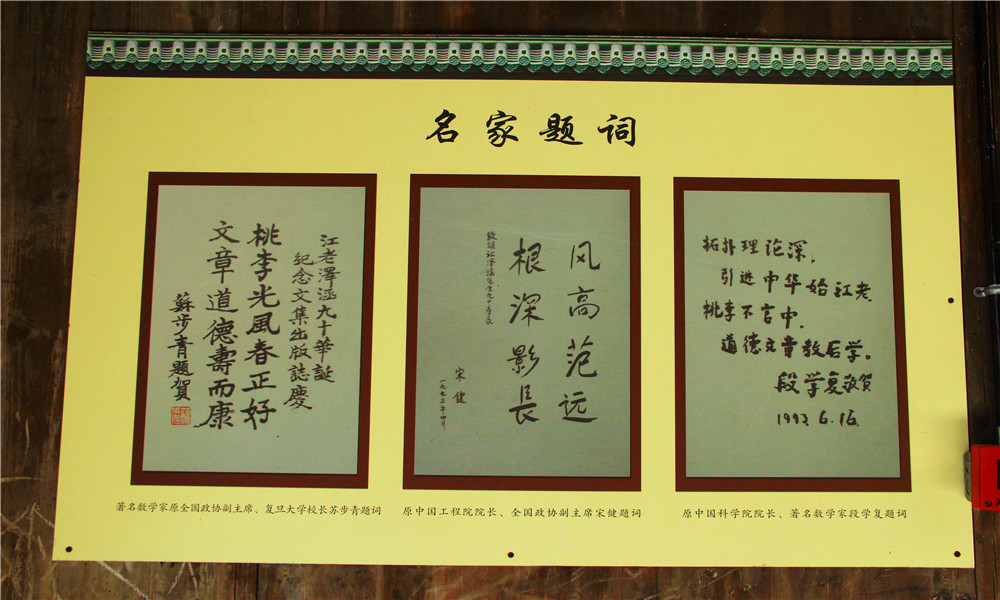 名家题词
江老澤涵九十華誕
紀念文集出版誌慶
桃李光風春正好
文章道德壽而康
蘇步青題賀
风高范远
根深影長
宋健
一九九二年四月
拓扑理论深，
引进中华始江老。
桃李不言中，
道德文章教后学。
段学复敬贺
1992.6.16.
著名数学家原全国政协副主席、复旦大学校长苏步青题词
原中国工程院院长、全国政协副主席宋健题词
原中国科学院院长、著名数学家段学复题词